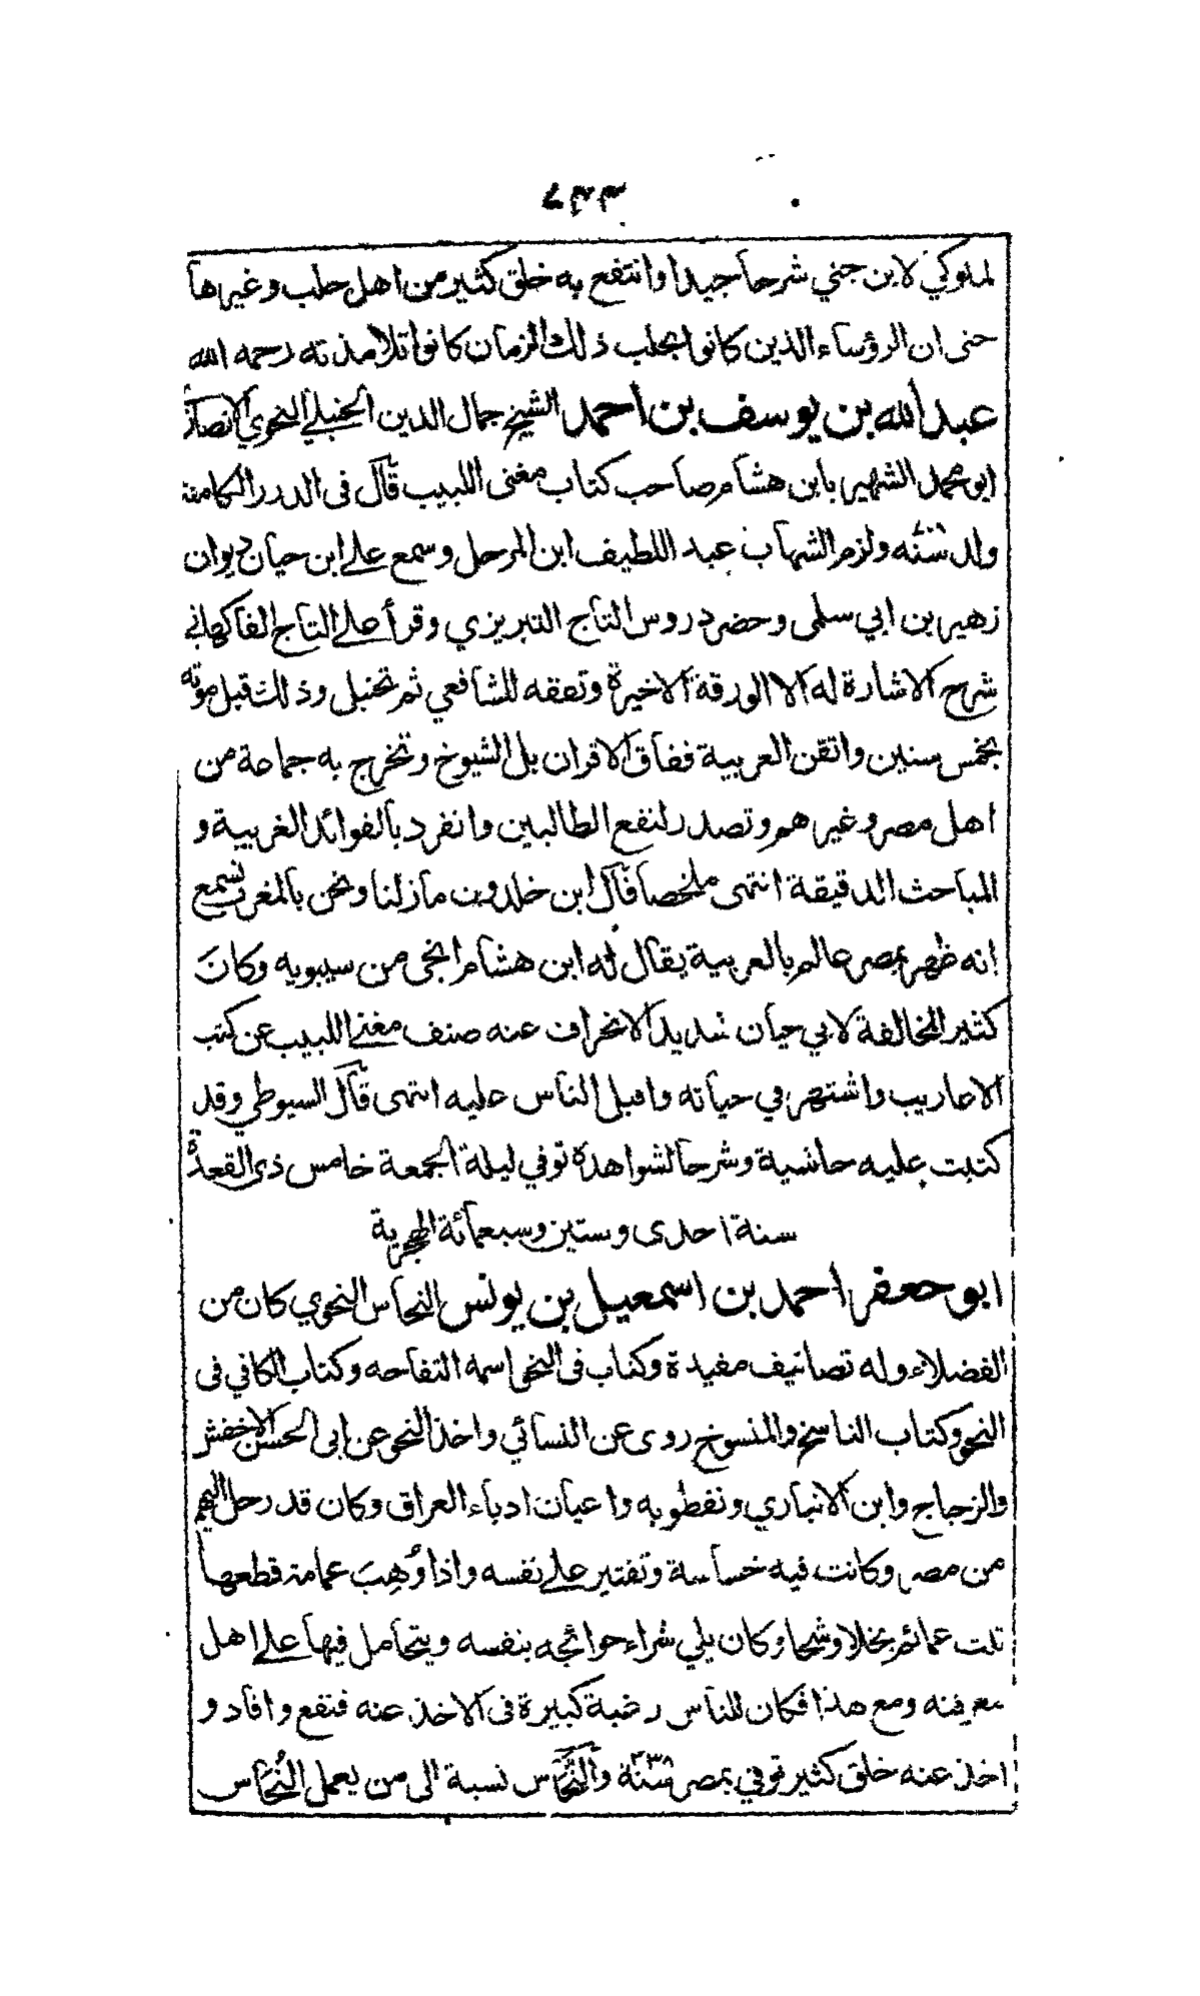 ٧٣٣
لملوكي لابن جني شرحا جيدا وانتفع به خلق كثير من اهل حلب وغيرها
حتى ان الرؤساء الذين كانوا بحلب ذلك الزمان كانوا تلامذته رحمه الله
عبد الله بن يوسف بن احمد الشيخ جمال الدين الحنبلي النحوي الانصاري
ابو محمد الشهير بابن هشام صاحب كتاب مغنى اللبيب قال فى الدرر الكامنة
ولد سنة ولزم الشهاب عبد اللطيف ابن المرحل وسمع على ابن حيان ديوان
زهير بن ابي سلمى وحضر دروس التاج التبريزي وقرأ على التاج الفاكهاني
شرح الاشارة له الا الورقة الاخيرة وتفقه للشافعي ثم تحنبل وذلك قبل موته
بخمس سنين واتقن العربية ففاق الاقران بل الشيوخ وتخرج به جماعة من
اهل مصر وغيرهم وتصدر لنفع الطالبين وانفرد بالفوائد الغريبة و
المباحث الدقيقة انتهى ملخصا قال ابن خلدون مازلنا ونحن بالمغرب نسمع
انه ظهر بمصر عالم بالعربية يقال له ابن هشام انحى من سيبويه وكان
كثير المخالفة لابي حيان شديد الانحراف عنه صنف مغنى اللبيب عن كتب
الاعاريب واشتهر في حياته واقبل الناس عليه انتهى قال السيوطي وقد
كتبت عليه حاشية وشرحا لشواهده توفي ليلة الجمعة خامس ذى القعدة
سنة احدى وستين وسبعمائة الهجرية
ابو جعفر احمد بن اسمعيل بن يونس النحاس النحوي كان من
الفضلاء وله تصانيف مفيدة وكتاب فى النحو اسمه التفاحه وكتاب الكافي فى
النحو وكتاب الناسخ والمنسوخ روى عن النسائي واخذ النحو عن ابى الحسن الاخفش
والزجاج وابن الانباري ونفطويه واعيان ادباء العراق وكان قد رحل اليهم
من مصر وكانت فيه خساسة وتقتير على نفسه واذا وُهِبَ عمامة قطعها
ثلث عمائم بخلا وشحا وكان يلي شراء حوائجه بنفسه ويتحامل فيها على اهل
معرفته ومع هذا فكان للناس رغبة كبيرة فى الاخذ عنه فنفع وافاد و
اخذ عنه خلق كثير توفي بمصر سنة ٣٣٨ والنُّحاس نسبة الى من يعمل النُحاس